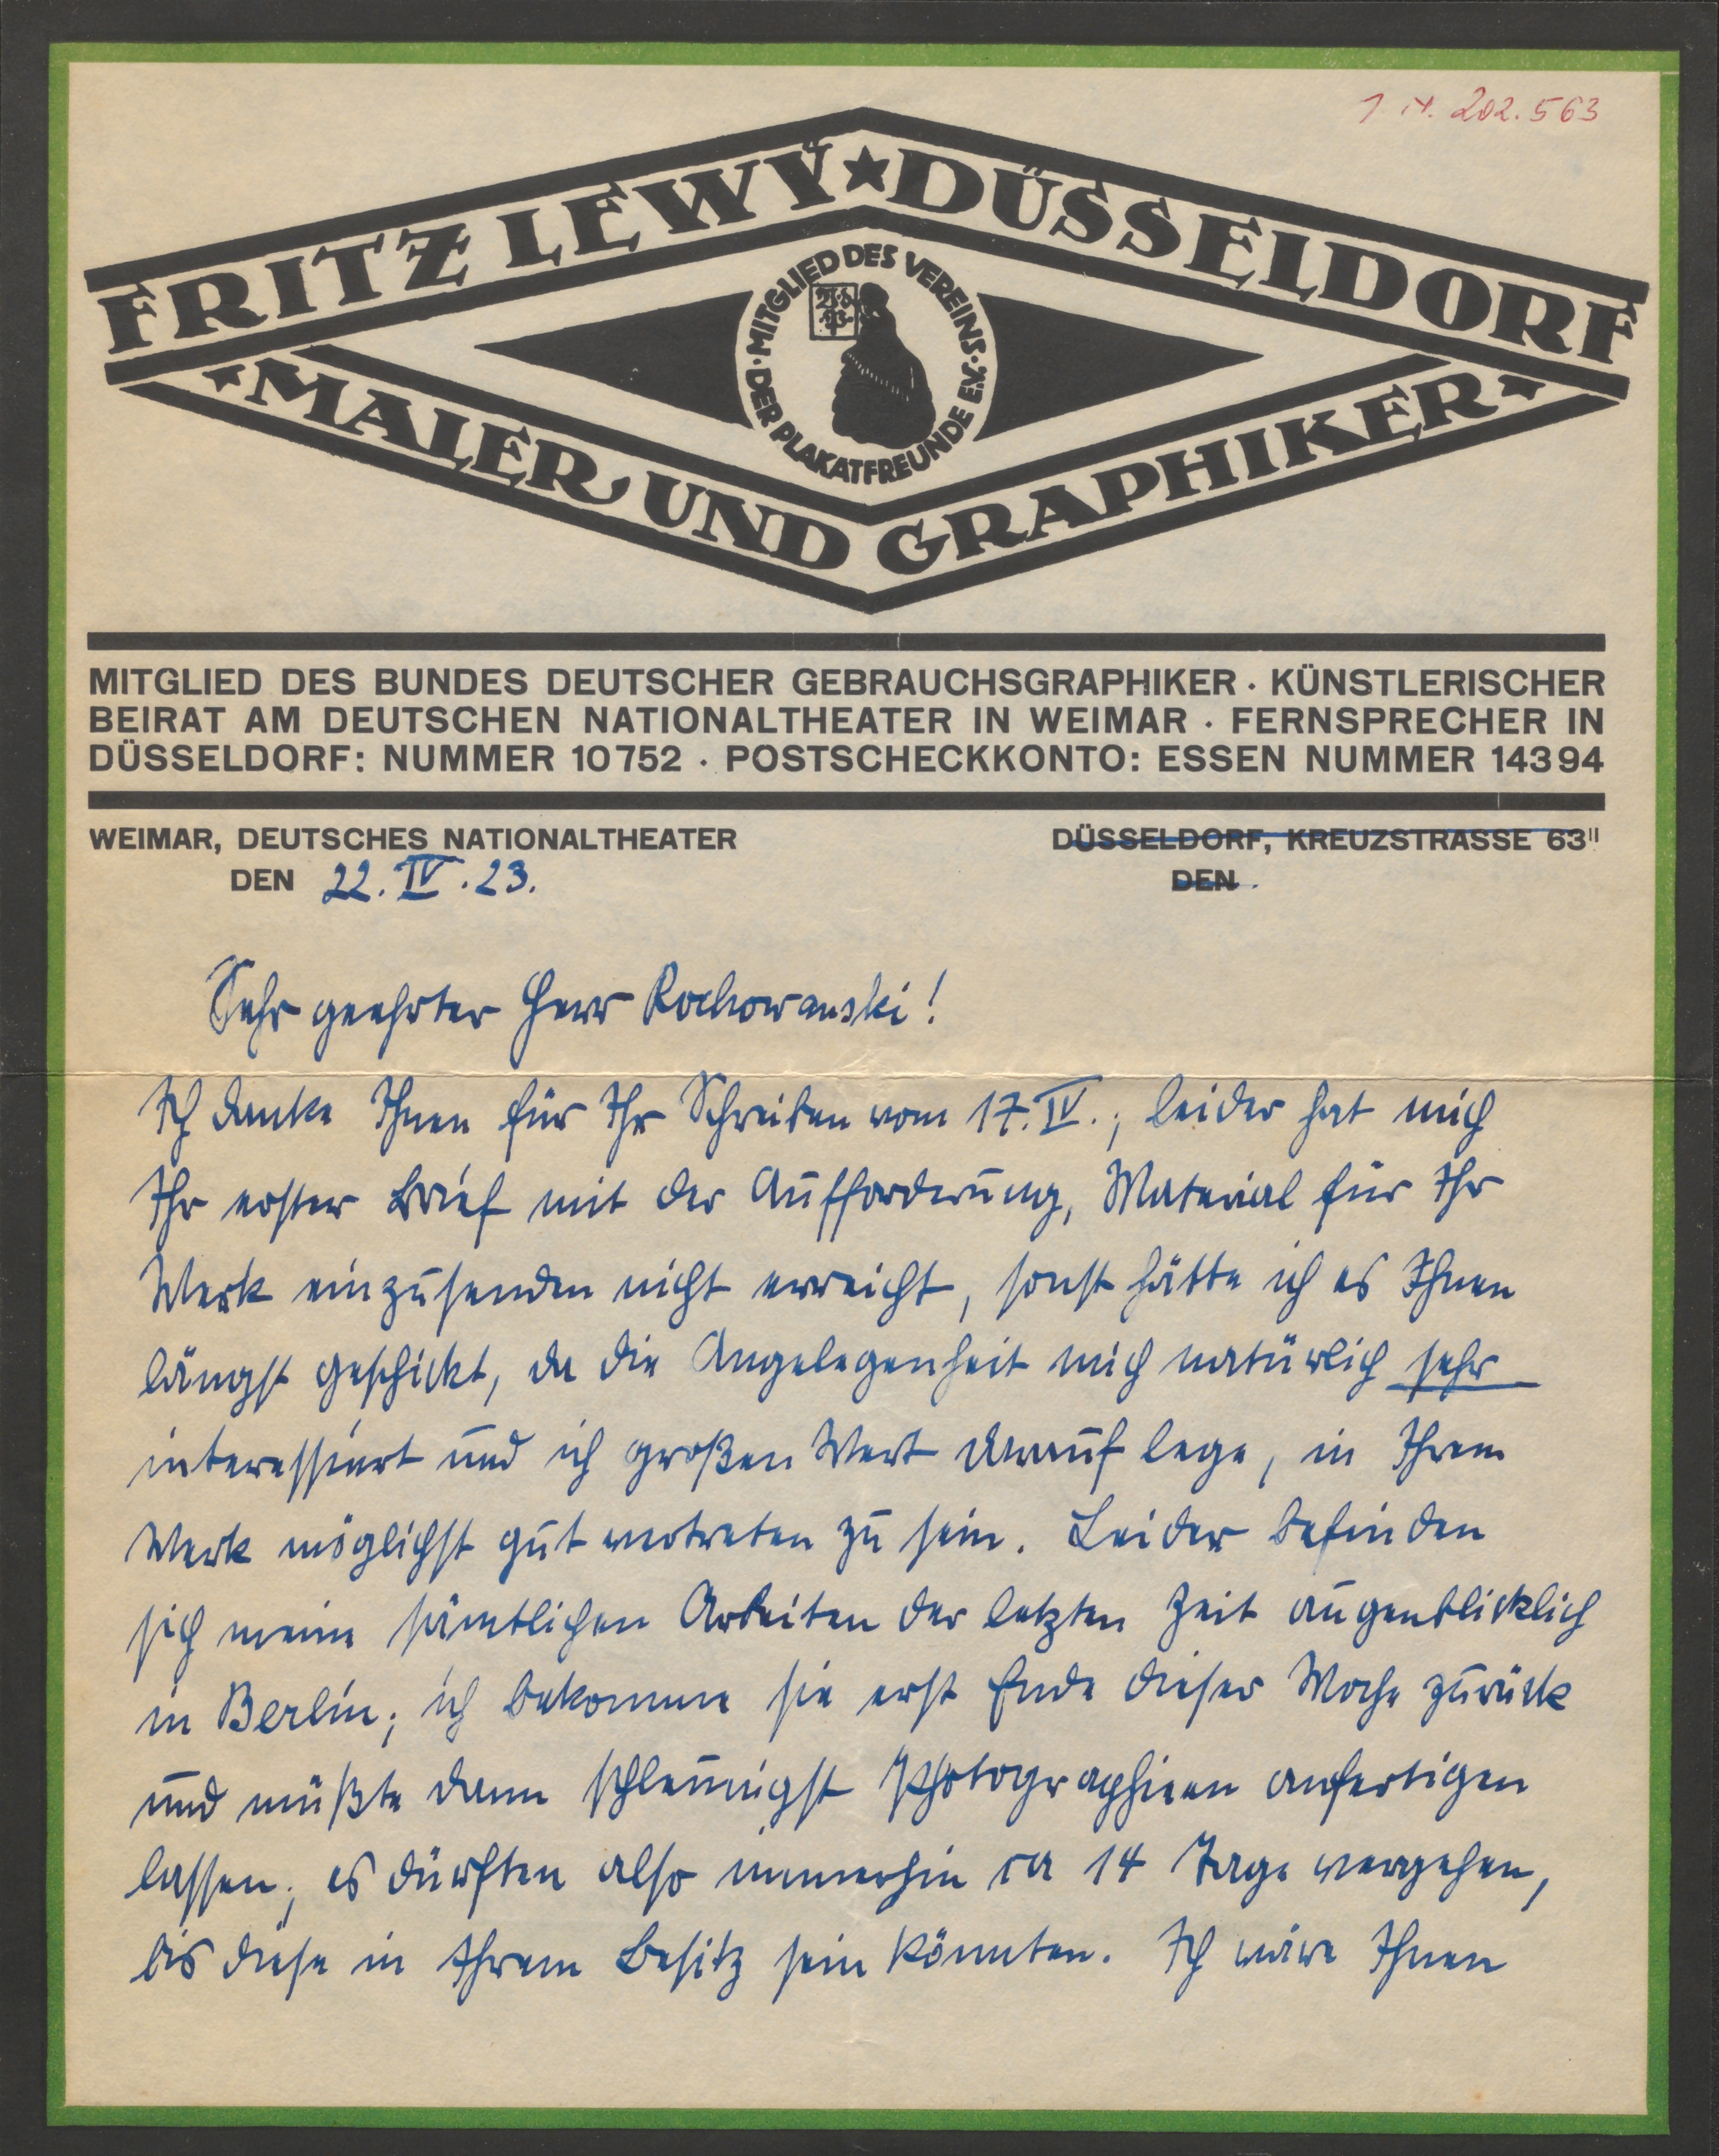 202.563
FRITZ LEWY ★ DÜSSELDORF
MITGLIED DES VEREINS · DER PLAKATFREUNDE E.V. ·
★ MALER UND GRAPHIKER ★
MITGLIED DES BUNDES DEUTSCHER GEBRAUCHSGRAPHIKER · KÜNSTLERISCHER
BEIRAT AM DEUTSCHEN NATIONALTHEATER IN WEIMAR · FERNSPRECHER IN
DÜSSELDORF: NUMMER 10752 · POSTSCHECKKONTO: ESSEN NUMMER 14394
WEIMAR, DEUTSCHES NATIONALTHEATER
DEN 22. IV. 23.
DÜSSELDORF, KREUZSTRASSE 63II
DEN
Sehr geehrter Herr Rochowanski!
Ich danke Ihnen für Ihr Schreiben vom 17. IV.; leider hat mich
Ihr erster Brief mit der Aufforderung, Material für Ihr
Werk einzusenden nicht erreicht, sonst hätte ich es Ihnen
längst geschickt, da die Angelegenheit mich natürlich sehr
interessiert und ich großen Wert darauf lege, in Ihrem
Werk möglichst gut vertreten zu sein. Leider befinden
sich meine sämtlichen Arbeiten der letzten Zeit augenblicklich
in Berlin; ich bekomme sie erst Ende dieser Woche zurück
und müßte dann schleunigst Photographieen anfertigen
lassen; es dürften also immerhin ca 14 Tage vergehen,
bis diese in Ihrem Besitz sein könnten. Ich wäre Ihnen